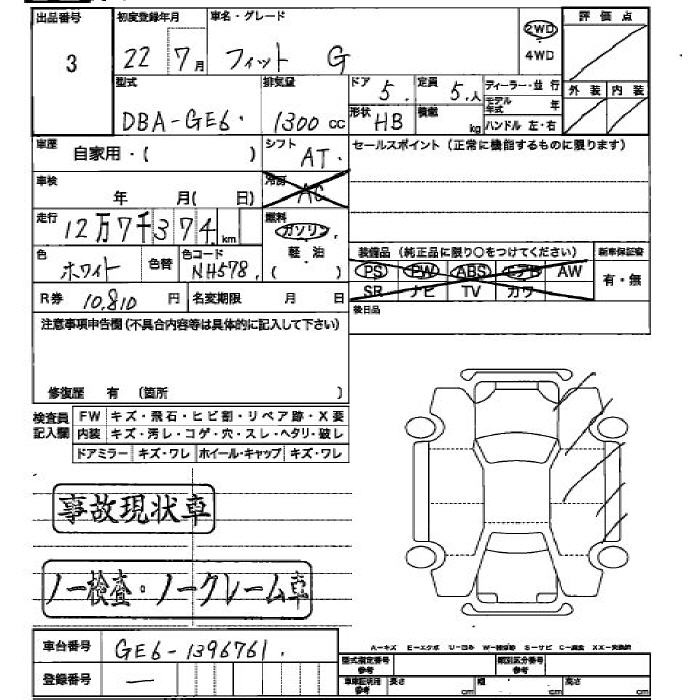 出品番号 初度登録年月 車名・グレード 評価点
3 22 7月 フィット G 2WD
4WD
型式 排気量 ドア 定員 ディーラー・並 行 外装 内装
DBA-GE6. 1300 CC 5. 5.人 モデル年式 年
形状 HB 積載 kg ハンドル 左・右
車歴 自家用・( ) シフト AT. セールスポイント(正常に機能するものに限ります)
車検 年 月( 日) 冷房 AC
走行 12万7千374 km 燃料 ガソリン
軽油
( )
色 ホワイト 色替 色コード NH578. 装備品(純正品に限り○をつけてください) 新車保証書
PS PW ABS エアB AW 有・無
SR ナビ TV カワ
R券 10,810 円 名変期限 月 日 後日品
注意事項申告欄(不具合内容等は具体的に記入して下さい)
修復歴 有 (箇所 )
検査員記入欄 FW キズ・飛石・ヒビ割・リペア跡・X要
内装 キズ・汚レ・コゲ・穴・スレ・ヘタリ・破レ
ドアミラー キズ・ワレ ホイール・キャップ キズ・ワレ
事故現状車
ノー検査・ノークレーム車
車台番号 GE6-1396761.
A-キズ E-エクボ U-ヨわ W-補修跡 S-サビ C-腐食 XX-交換済
型式指定番号 参考 類別区分番号 参考
登録番号 — 車庫証明用 参考 長さ cm 幅 cm 高さ cm